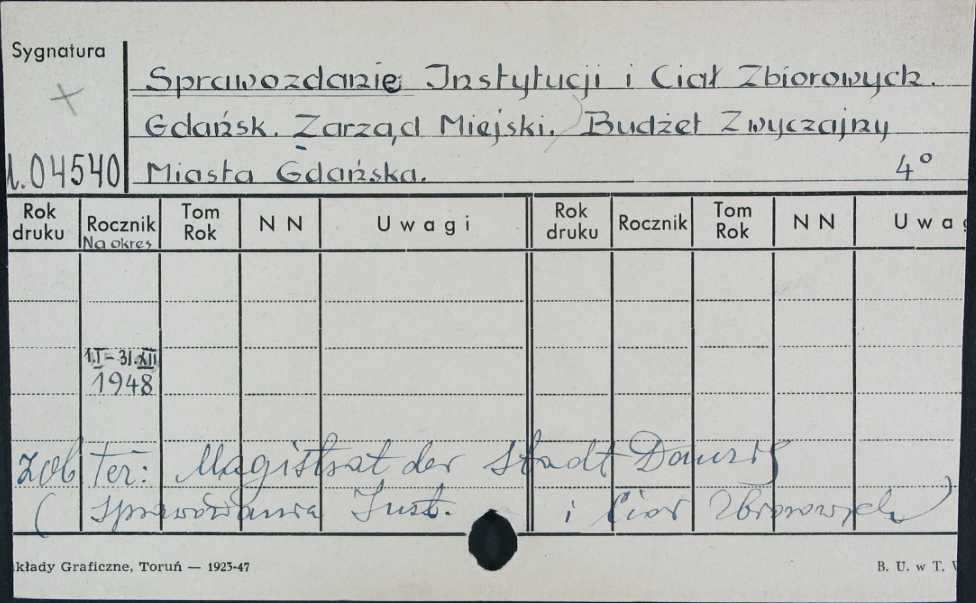 Sygnatura
Sprawozdanie Instytucji i Ciał Zbiorowych.
Gdańsk. Zarząd Miejski. Budżet Zwyczajny
04540 Miasta Gdańska. 4°
Rok druku Rocznik Tom Rok NN Uwagi Rok druku Rocznik Tom Rok NN Uwag
Na okres
1.I-31.XII
1948
zob też: Magistrat der Stadt Danzig
(Sprawozdania Inst. i Ciał Zbiorowych)
kłady Graficzne, Toruń — 1923-47 B. U. w T.